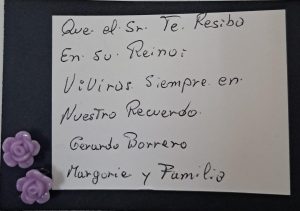 Que el Sr. Te Resiba
En Su Reino:
ViViras Siempre en
Nuestro Recuerdo.
Gerardo Borrero
Margorie y Familia